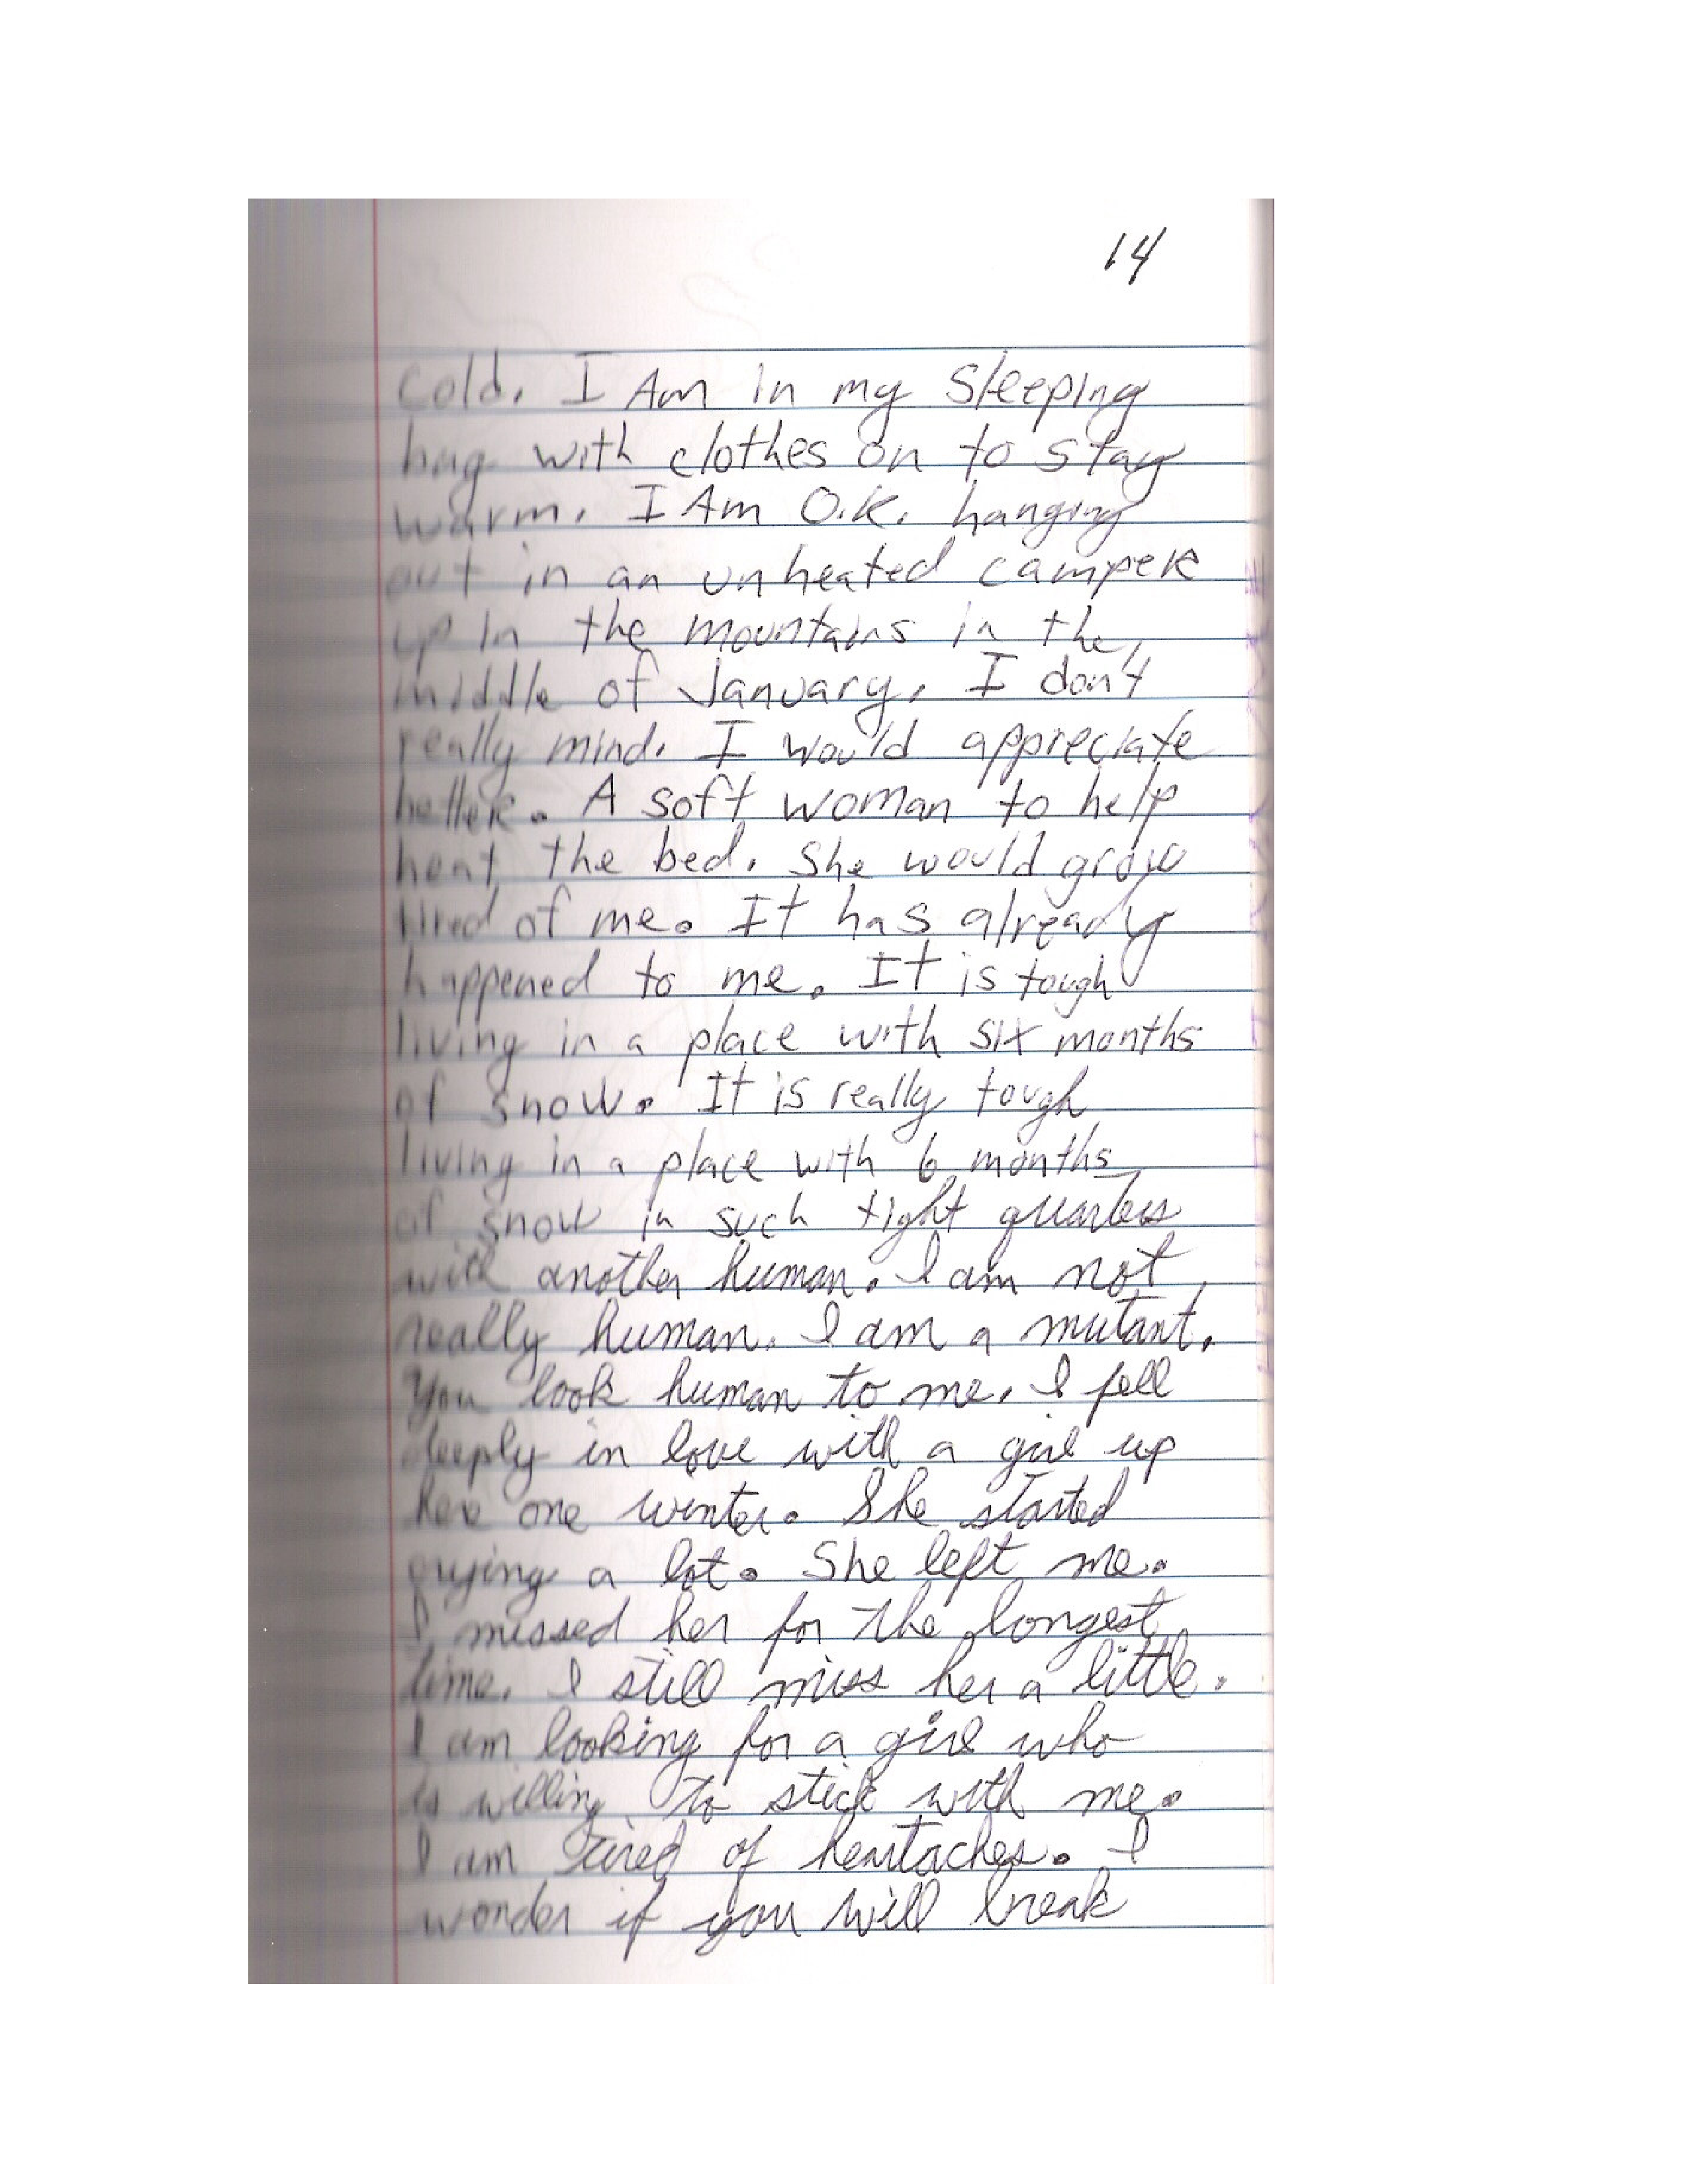 14
cold. I Am in my sleeping
bag with clothes on to stay
warm. I Am O.K. hanging
out in an unheated camper
up in the mountains in the
middle of January. I don't
really mind. I would appreciate
better. A soft woman to help
heat the bed. She would grow
tired of me. It has already
happened to me. It is tough
living in a place with six months
of snow. It is really tough
living in a place with 6 months
of snow in such tight quarters
with another human. I am not
really human. I am a mutant.
You look human to me. I fell
deeply in love with a girl up
here one winter. She started
crying a lot. She left me.
I missed her for the longest
time. I still miss her a little.
I am looking for a girl who
is willing to stick with me.
I am tired of heartaches. I
wonder if you will break